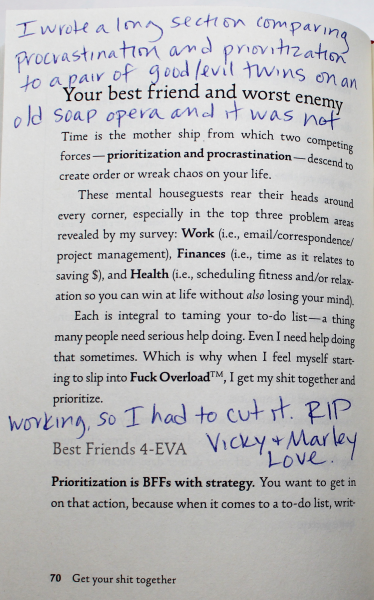 I wrote a long section comparing
procrastination and prioritization
to a pair of good/evil twins on an
Your best friend and worst enemy
old soap opera and it was not
Time is the mother ship from which two competing
forces—prioritization and procrastination—descend to
create order or wreak chaos on your life.
These mental houseguests rear their heads around
every corner, especially in the top three problem areas
revealed by my survey: Work (i.e., email/correspondence/
project management), Finances (i.e., time as it relates to
saving $), and Health (i.e., scheduling fitness and/or relax-
ation so you can win at life without also losing your mind).
Each is integral to taming your to-do list—a thing
many people need serious help doing. Even I need help doing
that sometimes. Which is why when I feel myself start-
ing to slip into Fuck Overload™, I get my shit together and
prioritize.
working, so I had to cut it. RIP
Best Friends 4-EVA
Vicky + Marley
Love.
Prioritization is BFFs with strategy. You want to get in
on that action, because when it comes to a to-do list, writ-
70 Get your shit together